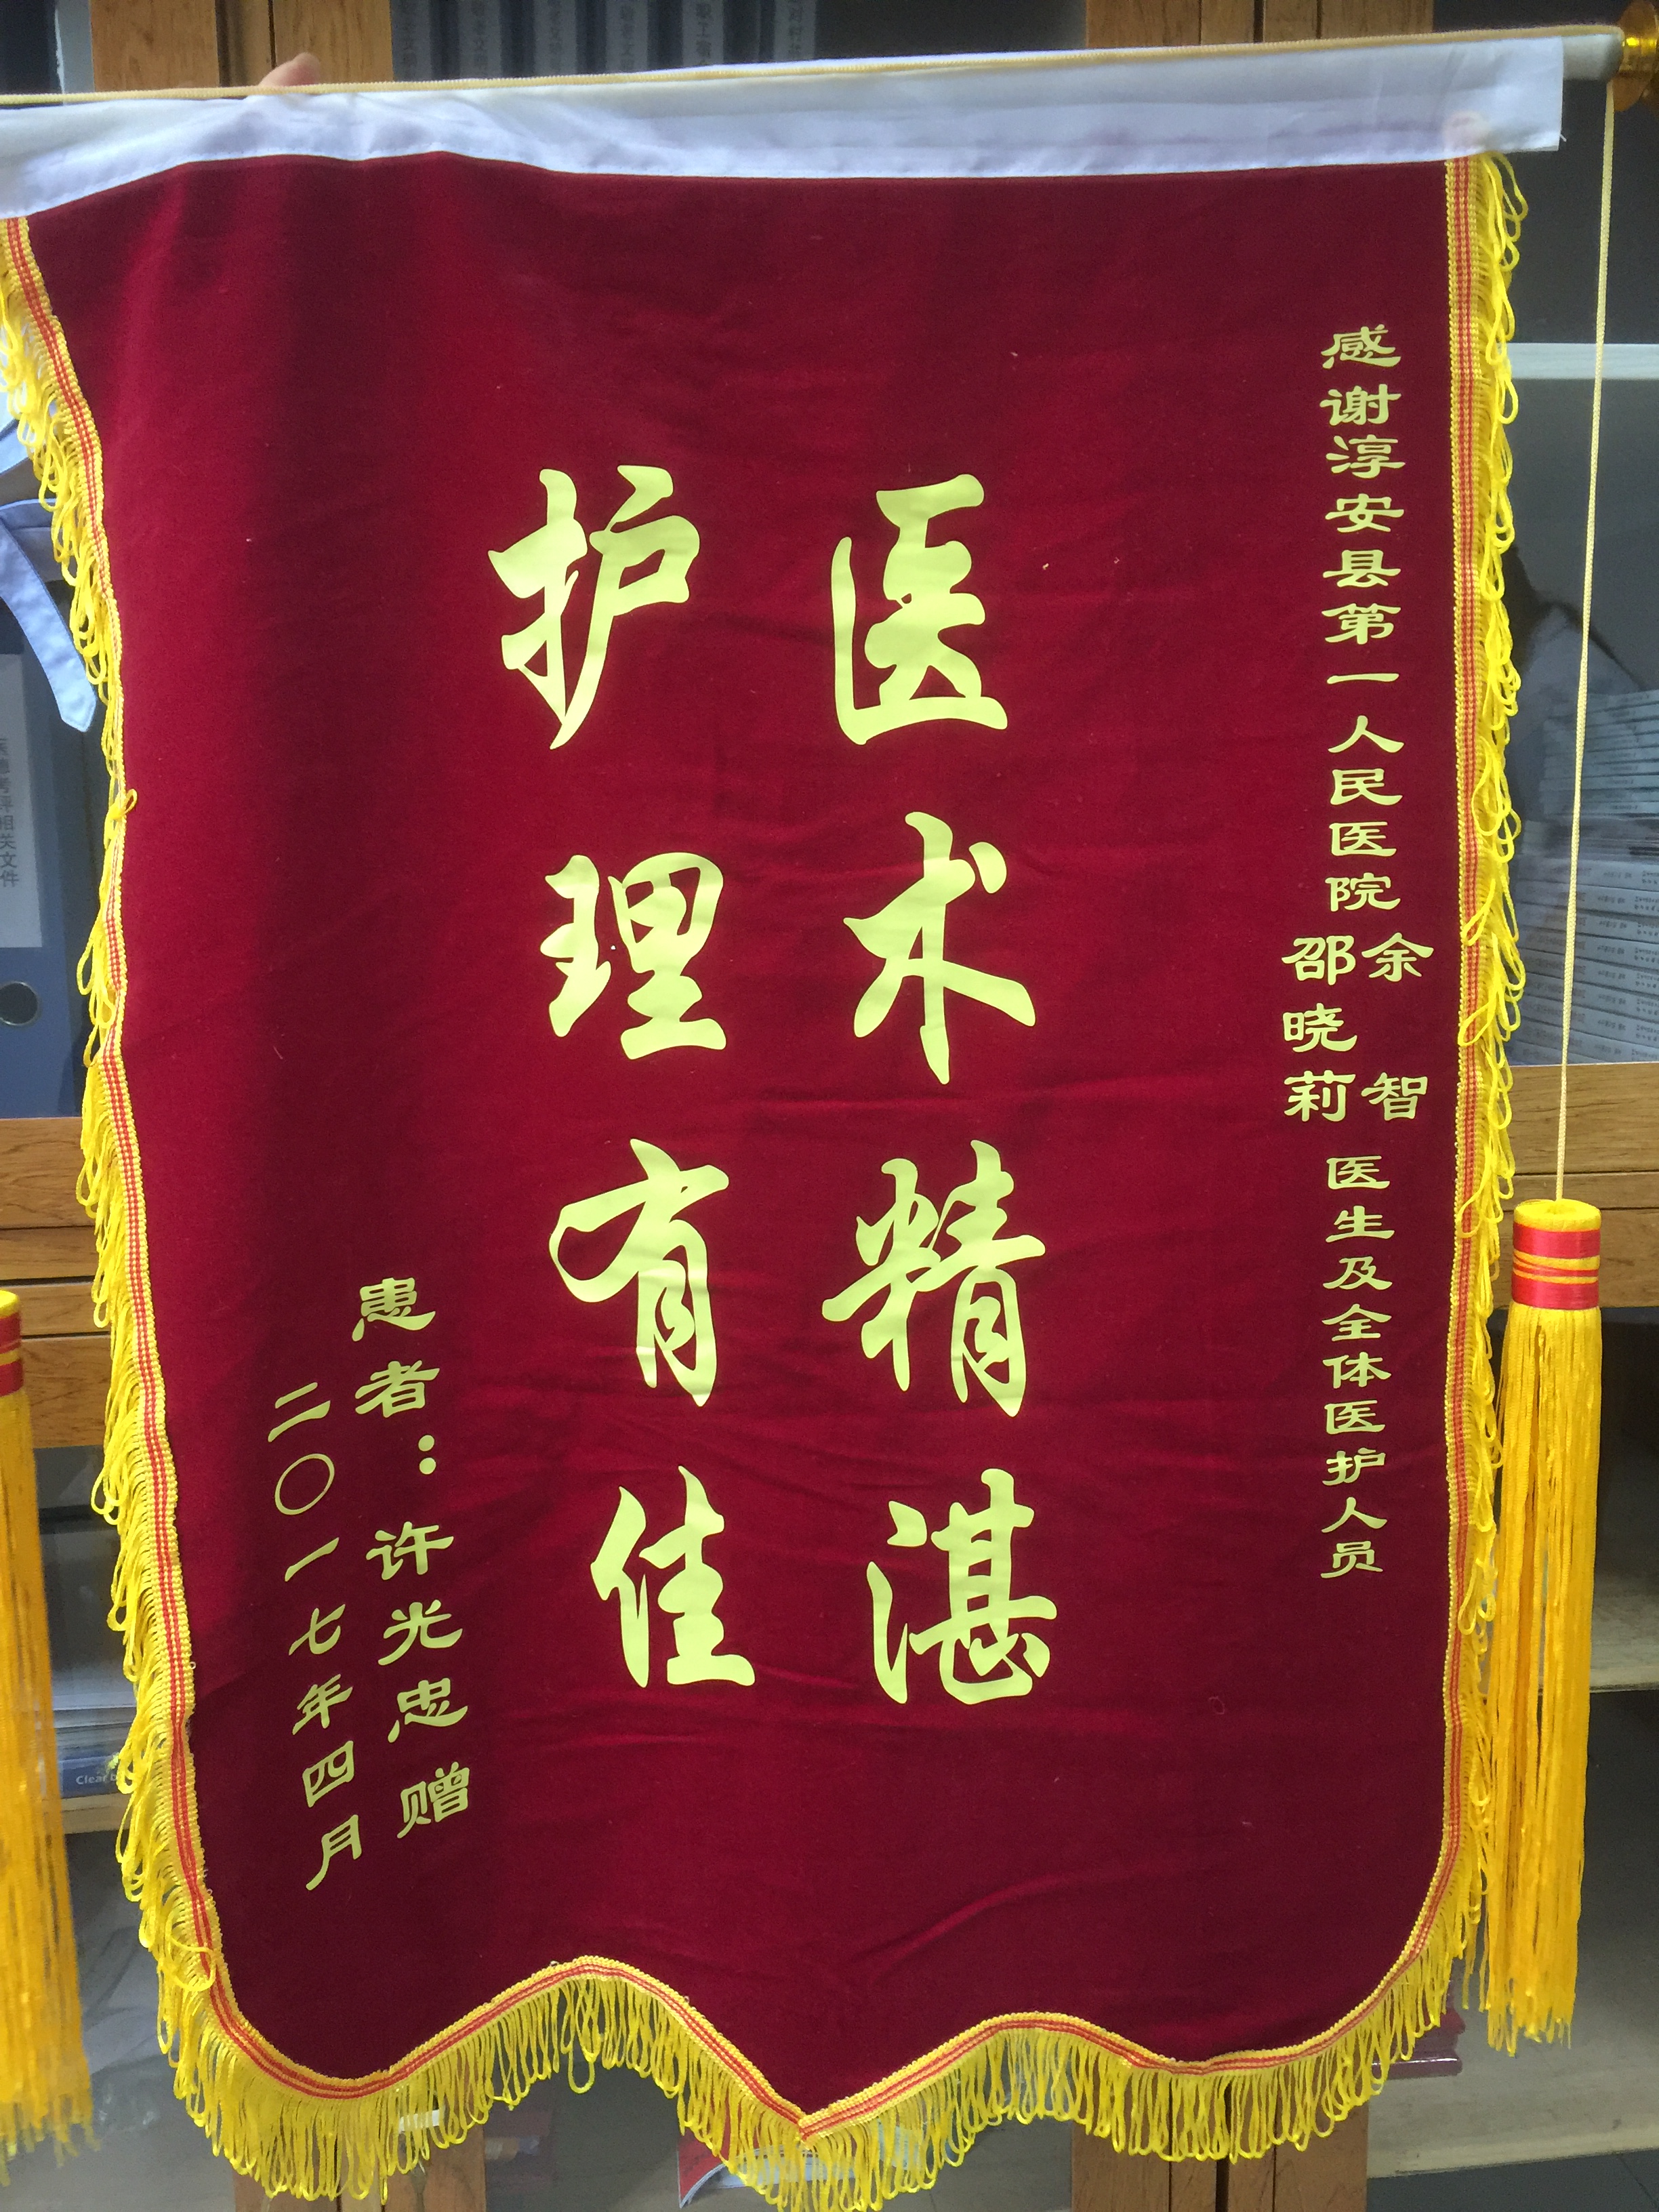 感谢淳安县第一人民医院余智邵晓莉医生及全体医护人员
医术精湛
护理有佳
患者：许光忠 赠
二〇一七年四月
医德考评相关文件
Clear